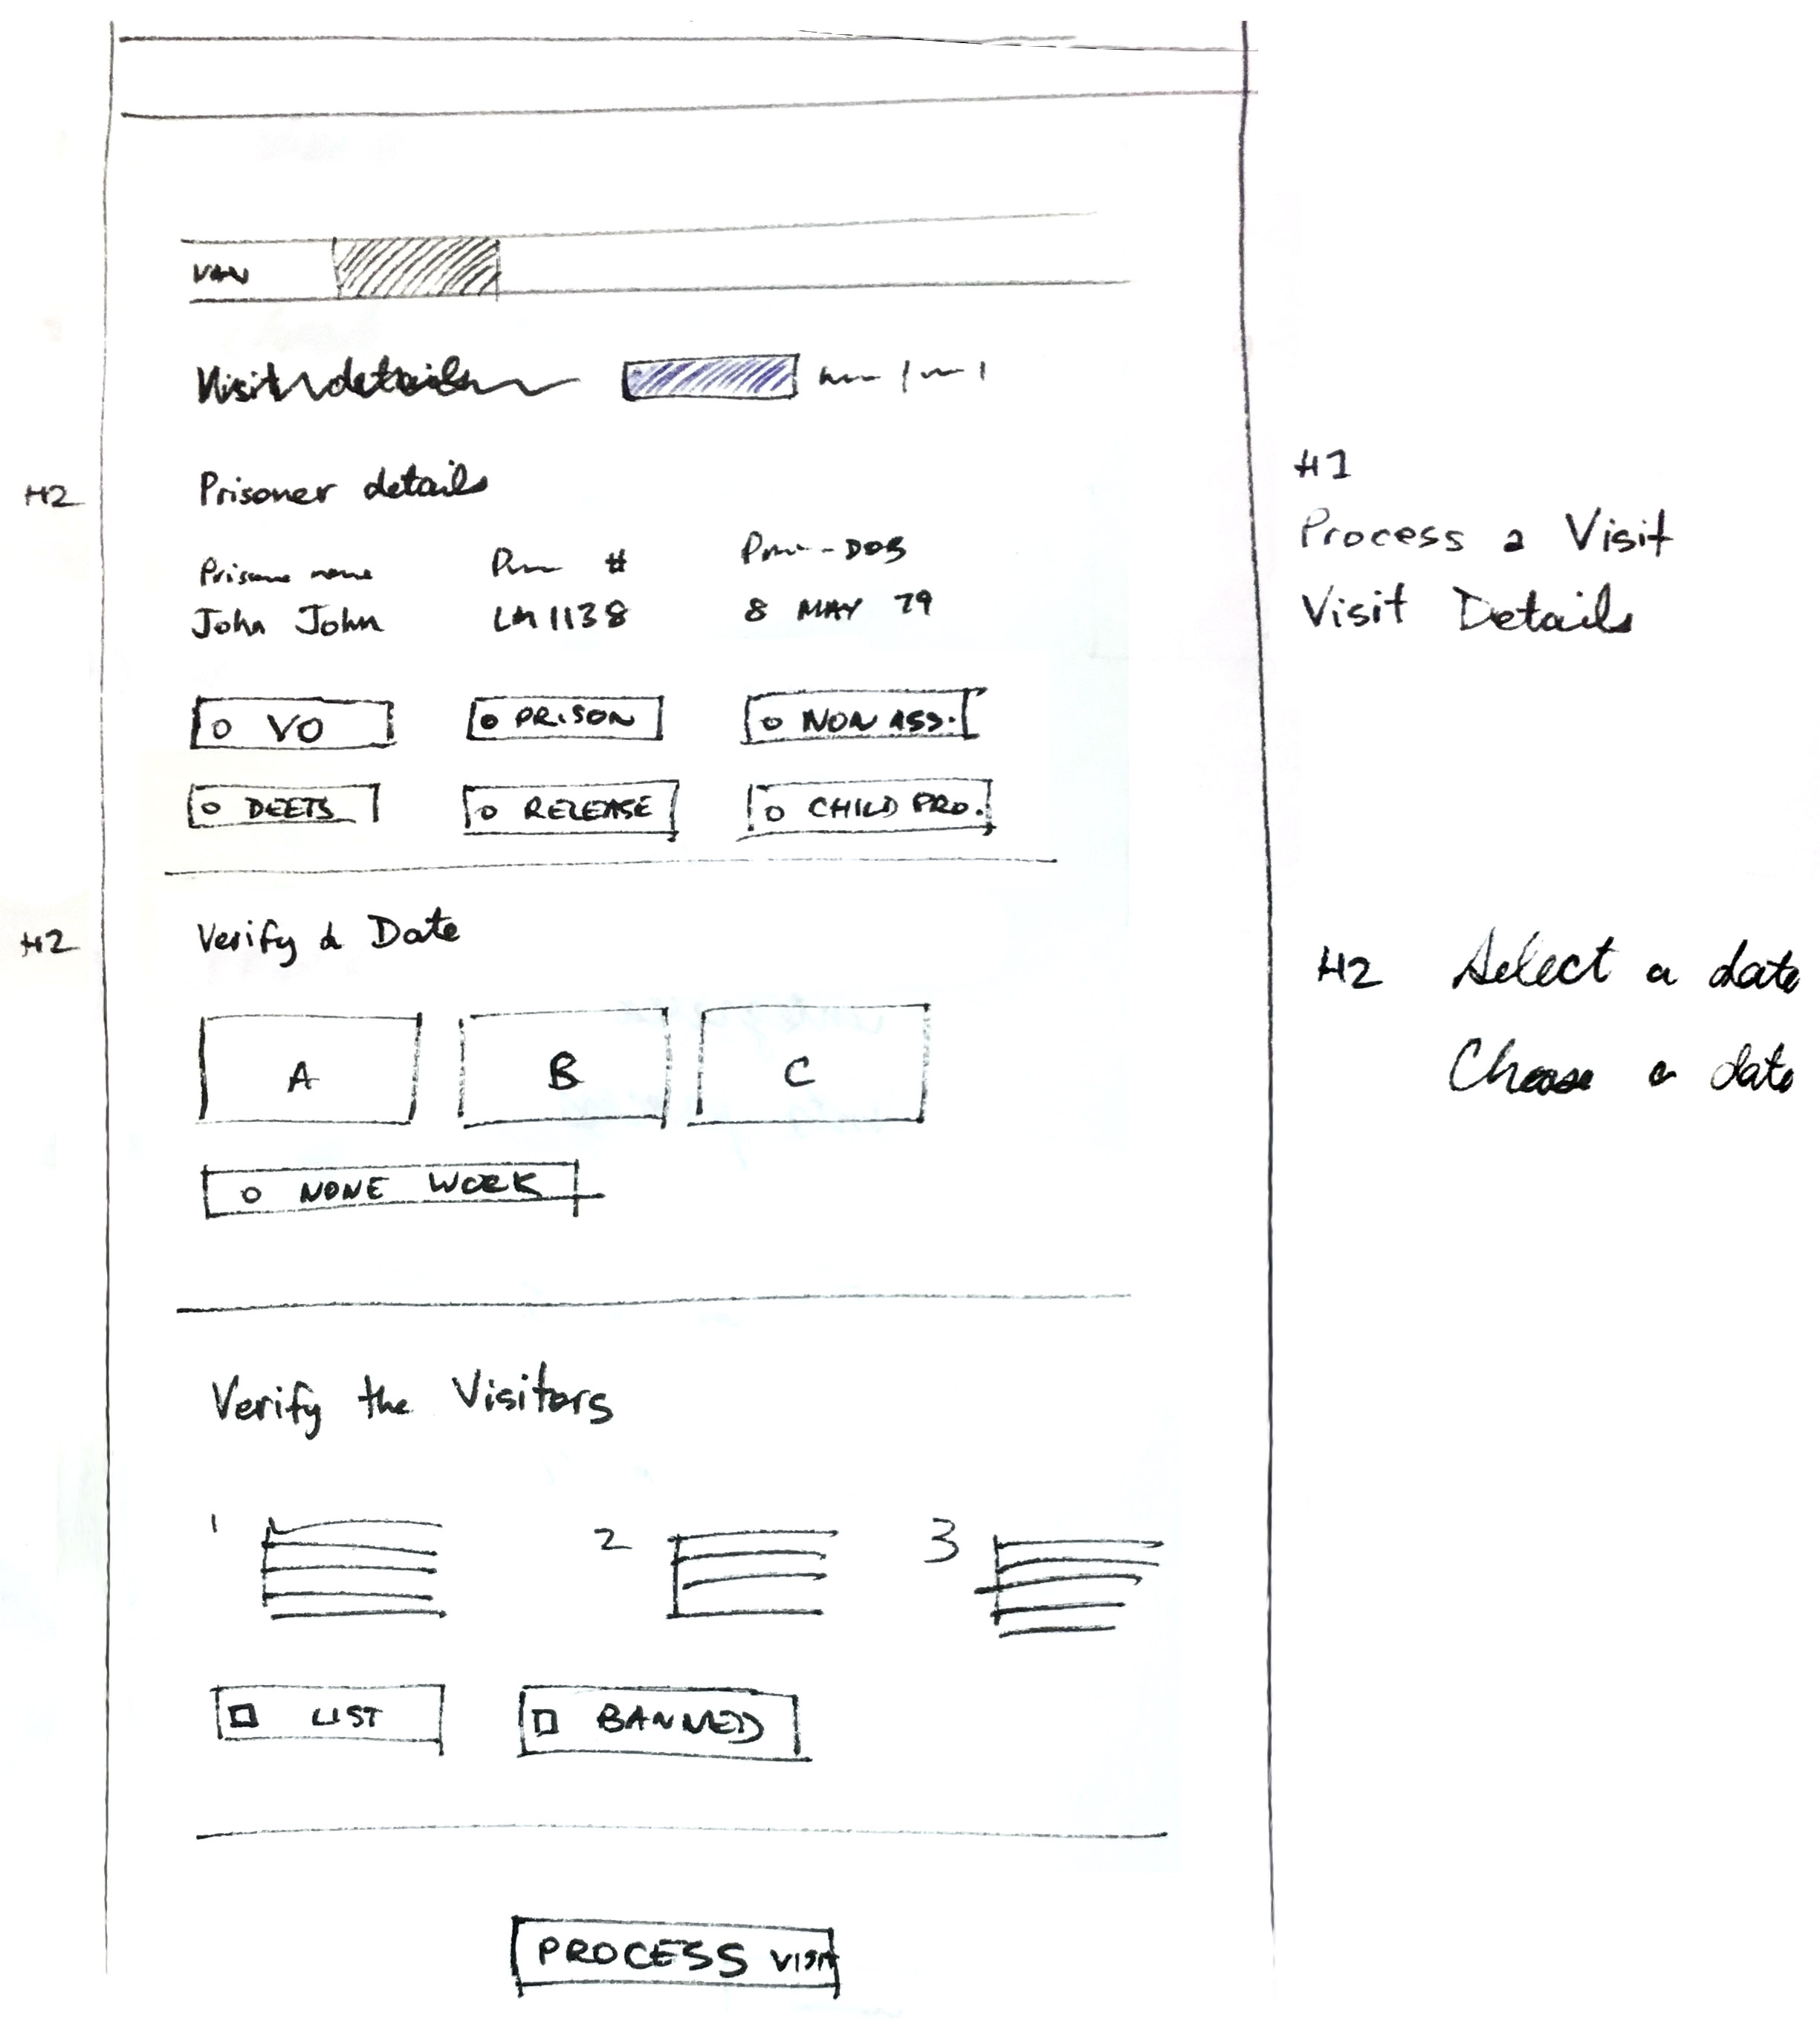 VAN
Visit details
H2
Prisoner details
Prisoner name
#
DOB
John John
LM1138
8 MAY 79
VO
PRISON
NON ASS.
DEETS
RELEASE
CHILD PRO.
H2
Verify a Date
A
B
C
NONE WORK
Verify the Visitors
1
2
3
LIST
BANNED
PROCESS VISIT
H1
Process a Visit
Visit Details
H2 Select a date
Choose a date